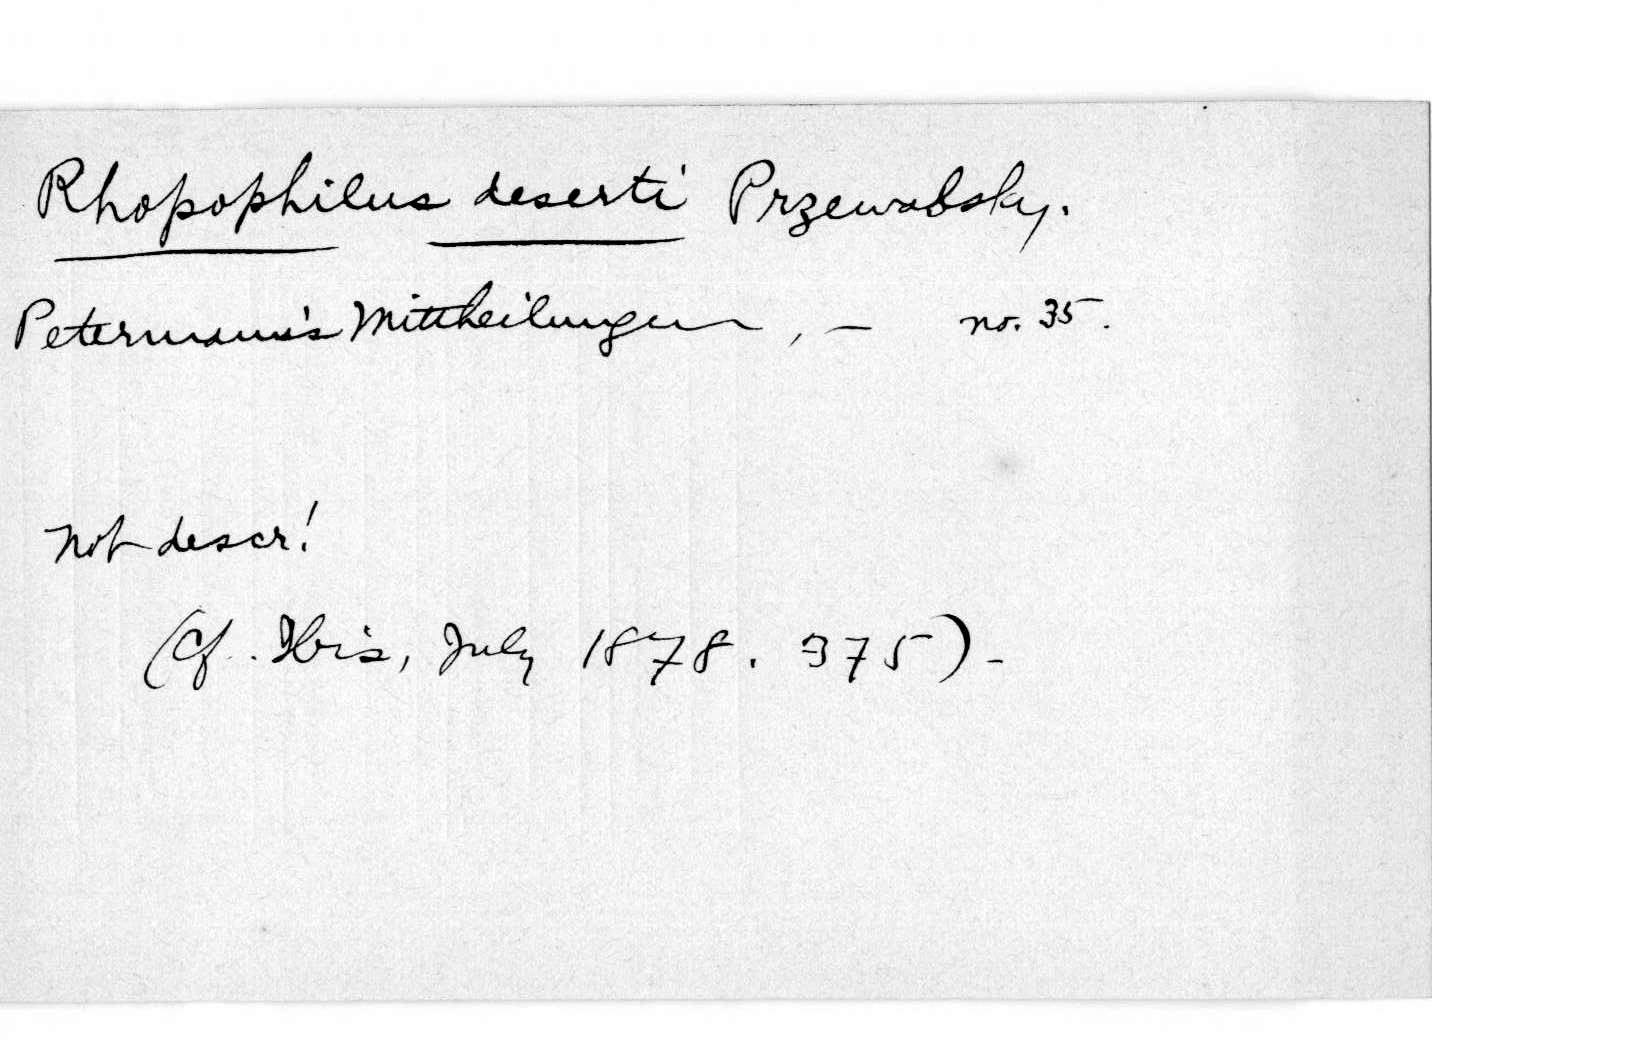 Rhopophilus deserti Przewalsky.
Petermann's Mittheilungen, — no. 35.
not descr!
(Cf. Ibis, July 1878. 375) -